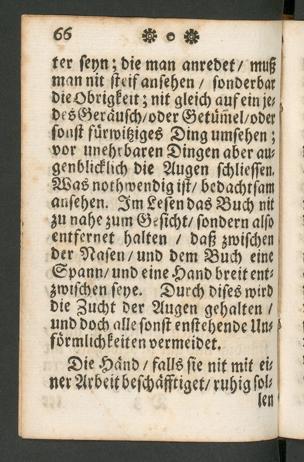 66
ter seyn; die man anredet / muß
man nit steif ansehen / sonderbar
die Obrigkeit; nit gleich auf ein je-
des Geräusch / oder Getümel / oder
sonst fürwitziges Ding umsehen;
vor unehrbaren Dingen aber au-
genblicklich die Augen schliessen.
Was nothwendig ist / bedachtsam
ansehen. Im Lesen das Buch nit
zu nahe zum Gesicht / sondern also
entfernet halten / daß zwischen
der Nasen / und dem Buch eine
Spann / und eine Hand breit ent-
zwischen seye. Durch dises wird
die Zucht der Augen gehalten /
und doch alle sonst enstehende Un-
förmlichkeiten vermeidet.
Die Händ / falls sie nit mit ei-
ner Arbeit beschäfftiget / ruhig sol-
len